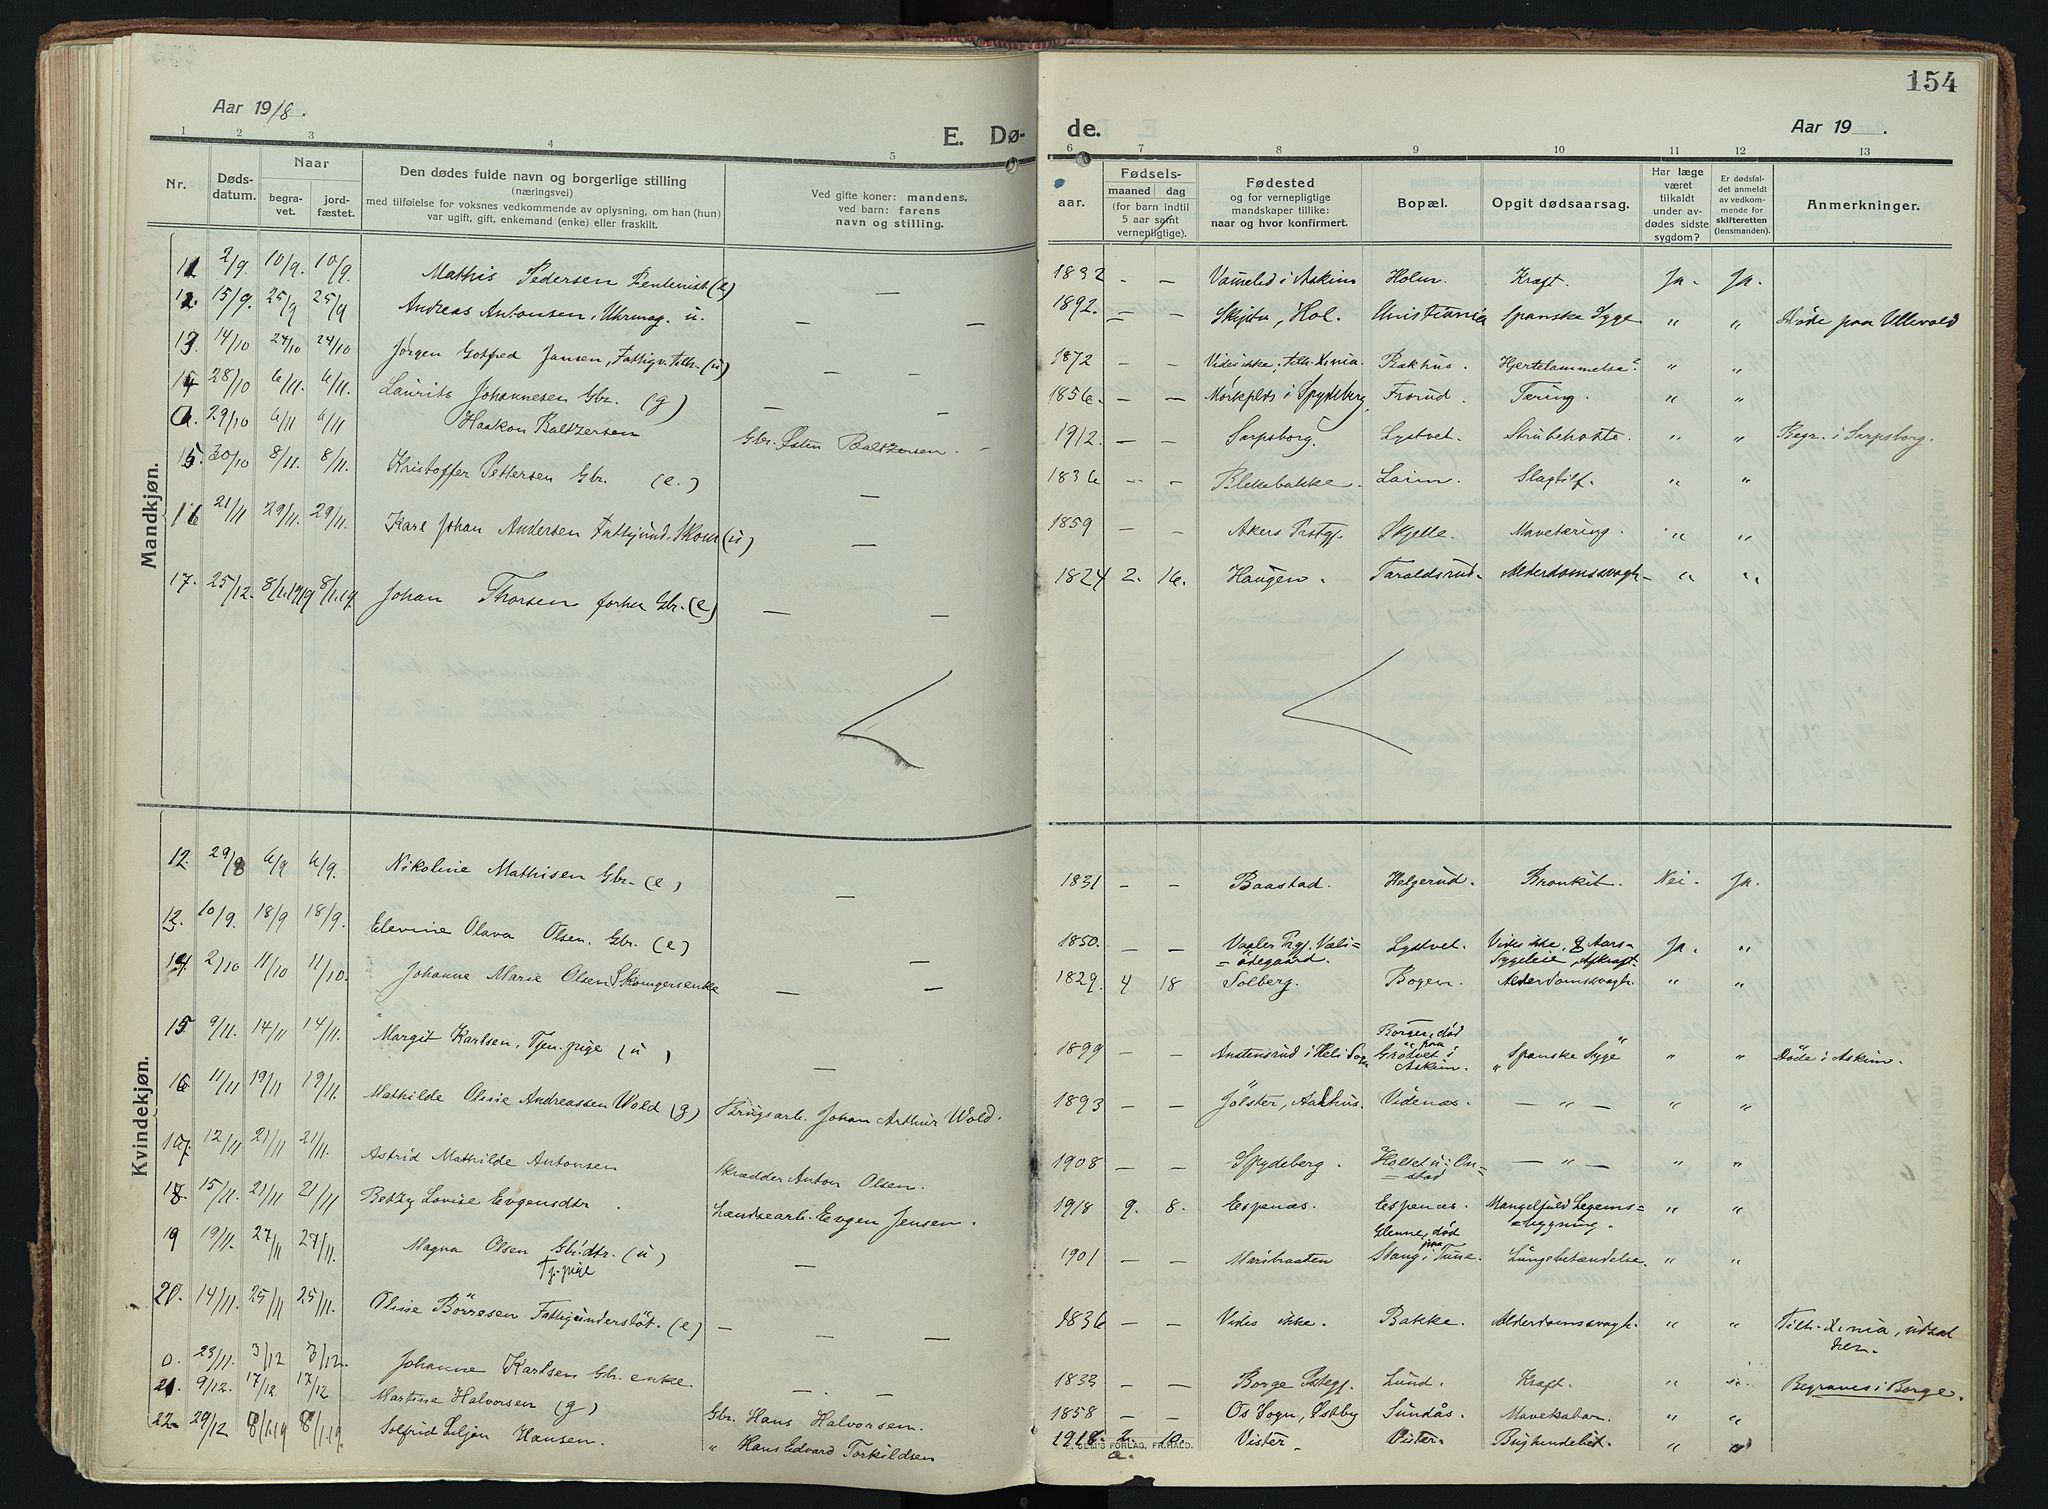 154
Aar 1918.
E. Dø-
de.
Aar 19 .
1 2 3 4 5
6 7 8 9 10 11 12 13
Nr.
Døds-
datum.
Naar
begra-
vet.
jord-
fæstet.
Den dødes fulde navn og borgerlige stilling
(næringsvei)
med tilføielse for voksnes vedkommende av oplysning, om han (hun)
var ugift, gift, enkemand (enke) eller fraskilt.
Ved gifte koner: mandens,
ved barn: farens
navn og stilling.
aar.
Fødsels-
maaned dag
(for barn indtil
5 aar samt
vernepligtige).
Fødested
og for vernepligtige
mandskaper tillike:
naar og hvor konfirmert.
Bopæl.
Opgit dødsaarsag.
Har læge
været
tilkaldt
under av-
dødes sidste
sygdom?
Er dødsfal-
det anmeldt
av vedkom-
mende for
skifteretten
(lensmanden).
Anmerkninger.
Mandkjøn.
11 2/9. 10/9. 10/9. Mathis Pedersen (e) — 1832 — — i Askim Holm. Kræft. Ja. Ja.
12 15/9. 25/9 25/9 Andreas Antonsen, Uhrmag. u. — — 1892. — — Hol. Kristiania Spanske Syge " " Døde paa Ullevold
13. 14/10 24/10 24/10 Jørgen Gotfred Jansen, (u) — — 1872 — — Vides ikke, Tilh. X.nia. Bakhus. Hjertelammelse? " "
14 28/10 6/11. 6/11. Laurits Johannesen Gbr. (g) — — 1856. — — i Spydeberg Frorud. Tæring. " "
0. 29/10 6/11 6/11 Haakon Baltzersen Gbr. Østen Baltzersen. 1912. — — Sarpsborg. Lystvet. Strubehoste. " " Begr. i Sarpsborg.
15. 30/10 8/11. 8/11. Kristoffer Pettersen Gbr. (e.) — 1836 — — Blekebakke. Slagtilf. " "
16 21/11 29/11. 29/11. Karl Johan Andersen (u) — 1859 — — Akers Prstgj. Skjelle. Mavetæring. " "
17. 25/12. 8/1.1919 8/1.19. Johan Thorsen forhv. Gbr. (e) — — 1824 2. 16. Haugen. Taraldsrud. Alderdomssvagh. " "
Kvindekjøn.
12. 29/8 6/9 6/9. Nikoline Mathisen Gbr. (e) — 1831 — — Baastad. Helgerud. Bronkit. Nei. Ja.
13. 10/9. 18/9 18/9. Elevine Olava Olsen. Gbr. (e) — 1850. — — Vaaler Prgj. Væli=
=ødegaard. Lystvet. Vides ikke, 8 Aars=
Sygeleie, Afkraft. Ja. "
14 2/10 11/10 11/10. Johanne Marie Olsen — — 1829. 4 18 Solberg. Bogen. Alderdomssvagh. " "
15. 9/11. 14/11 14/11. Margit Karlsen, Tjen. pige (u) — 1899 — — Borgen, død
paa
Grøtvet i
Askim. Spanske Syge " " Døde i Askim.
16 11/11 19/11 19/11. Mathilde Oline Andreassen Wold (g) Brugsarb. Johan Arthur Wold. 1893 — — Jölster, Videnæs. — " — " "
17. 12/11 21/11 21/11. Astrid Mathilde Antonsen Skrædder Anton Olsen. 1908 — — Spydeberg. Holtet u. On=
=stad — " — " "
18 15/11. 21/11 21/11 Betzy Lovise Evgensdtr. Evgen Jensen. 1918 9. 8. Espenæs. Espenæs. Mangelfuld Legems=
=bygning. " "
19 19/11. 27/11 27/11. Magna Olsen Gbr.dtr. (u)
Tj. pige — 1901 — — Maribraaten Glenne, død
paa
Stang i Tune. Lungebetændelse. " "
20. 14/11. 25/11 25/11. Oline Börresen Fattigunderstöt. (e) — — 1836 — — Vides ikke. Bakke. Alderdomssvagh. " " Tilh. X.nia, udsat
her.
0. 23/11. 3/12 3/12. Johanne Karlsen Gbr. enke. — — 1833 — — Borge Prstegj. Lund. Kræft. " " Begraves i Borge.
21. 9/12. 17/12. 17/12 Martine Halvorsen (g) Gbr. Hans Halvorsen. 1858 — — Os Sogn, Østby Sundås. Mavekatar. " "
22. 29/12 8/1.19 8/1.19. Solfrid Liljan Hansen. " Hans Edvard Torkildsen 1918. 2. 10. Vister. Vister. " "
SEM'S FORLAG, FR.HALD.